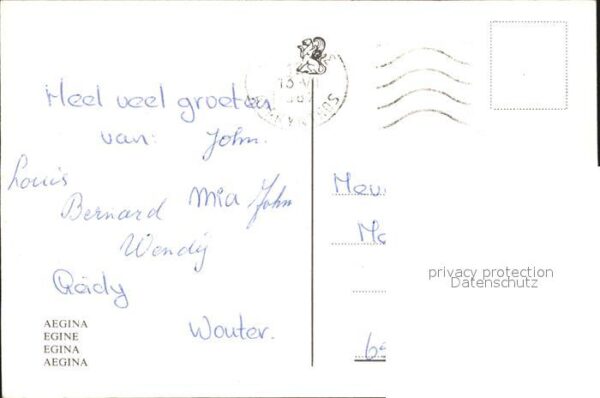 Heel veel groeten
van: John.
Louis
Bernard Mia John
Wendy
Wouter.
AEGINA
EGINE
EGINA
AEGINA
Mev.
privacy protection
Datenschutz